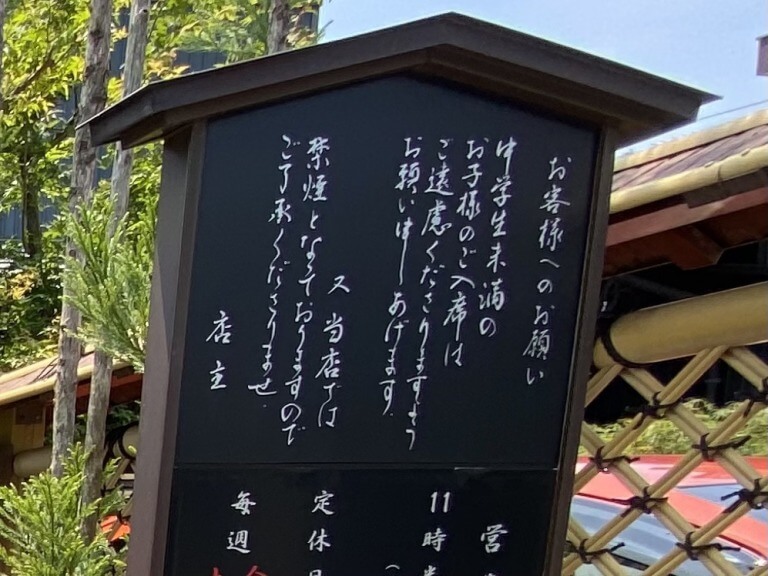 お客様へのお願い
中学生未満の
お子様のご入席は
ご遠慮くださりますよう
お願い申しあげます
又当店では
禁煙となっておりますので
ご了承くださりませ
店主
営
11時
定休日
毎週